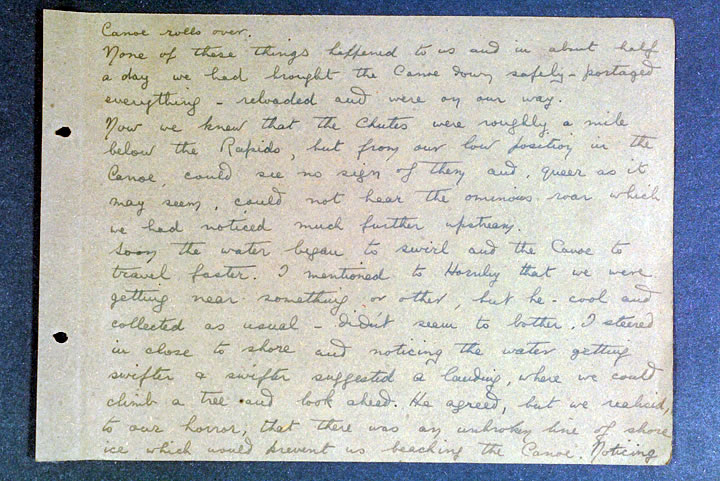 Canoe rolls over.
None of these things happened to us and in about half
a day we had brought the Canoe down safely - portaged
everything - reloaded and were on our way.
Now we knew that the Chutes were roughly a mile
below the Rapids, but from our low position in the
Canoe, could see no sign of them and, queer as it
may seem, could not hear the ominous roar which
we had noticed much further upstream.
Soon the water began to swirl and the Canoe to
travel faster. I mentioned to Hornby that we were
getting near something or other, but he - cool and
collected as usual - didn't seem to bother. I steered
in close to shore and noticing the water getting
swifter & swifter suggested a landing, where we could
climb a tree and look ahead. He agreed, but we realised,
to our horror, that there was an unbroken line of shore
ice which would prevent us beaching the Canoe. Noticing